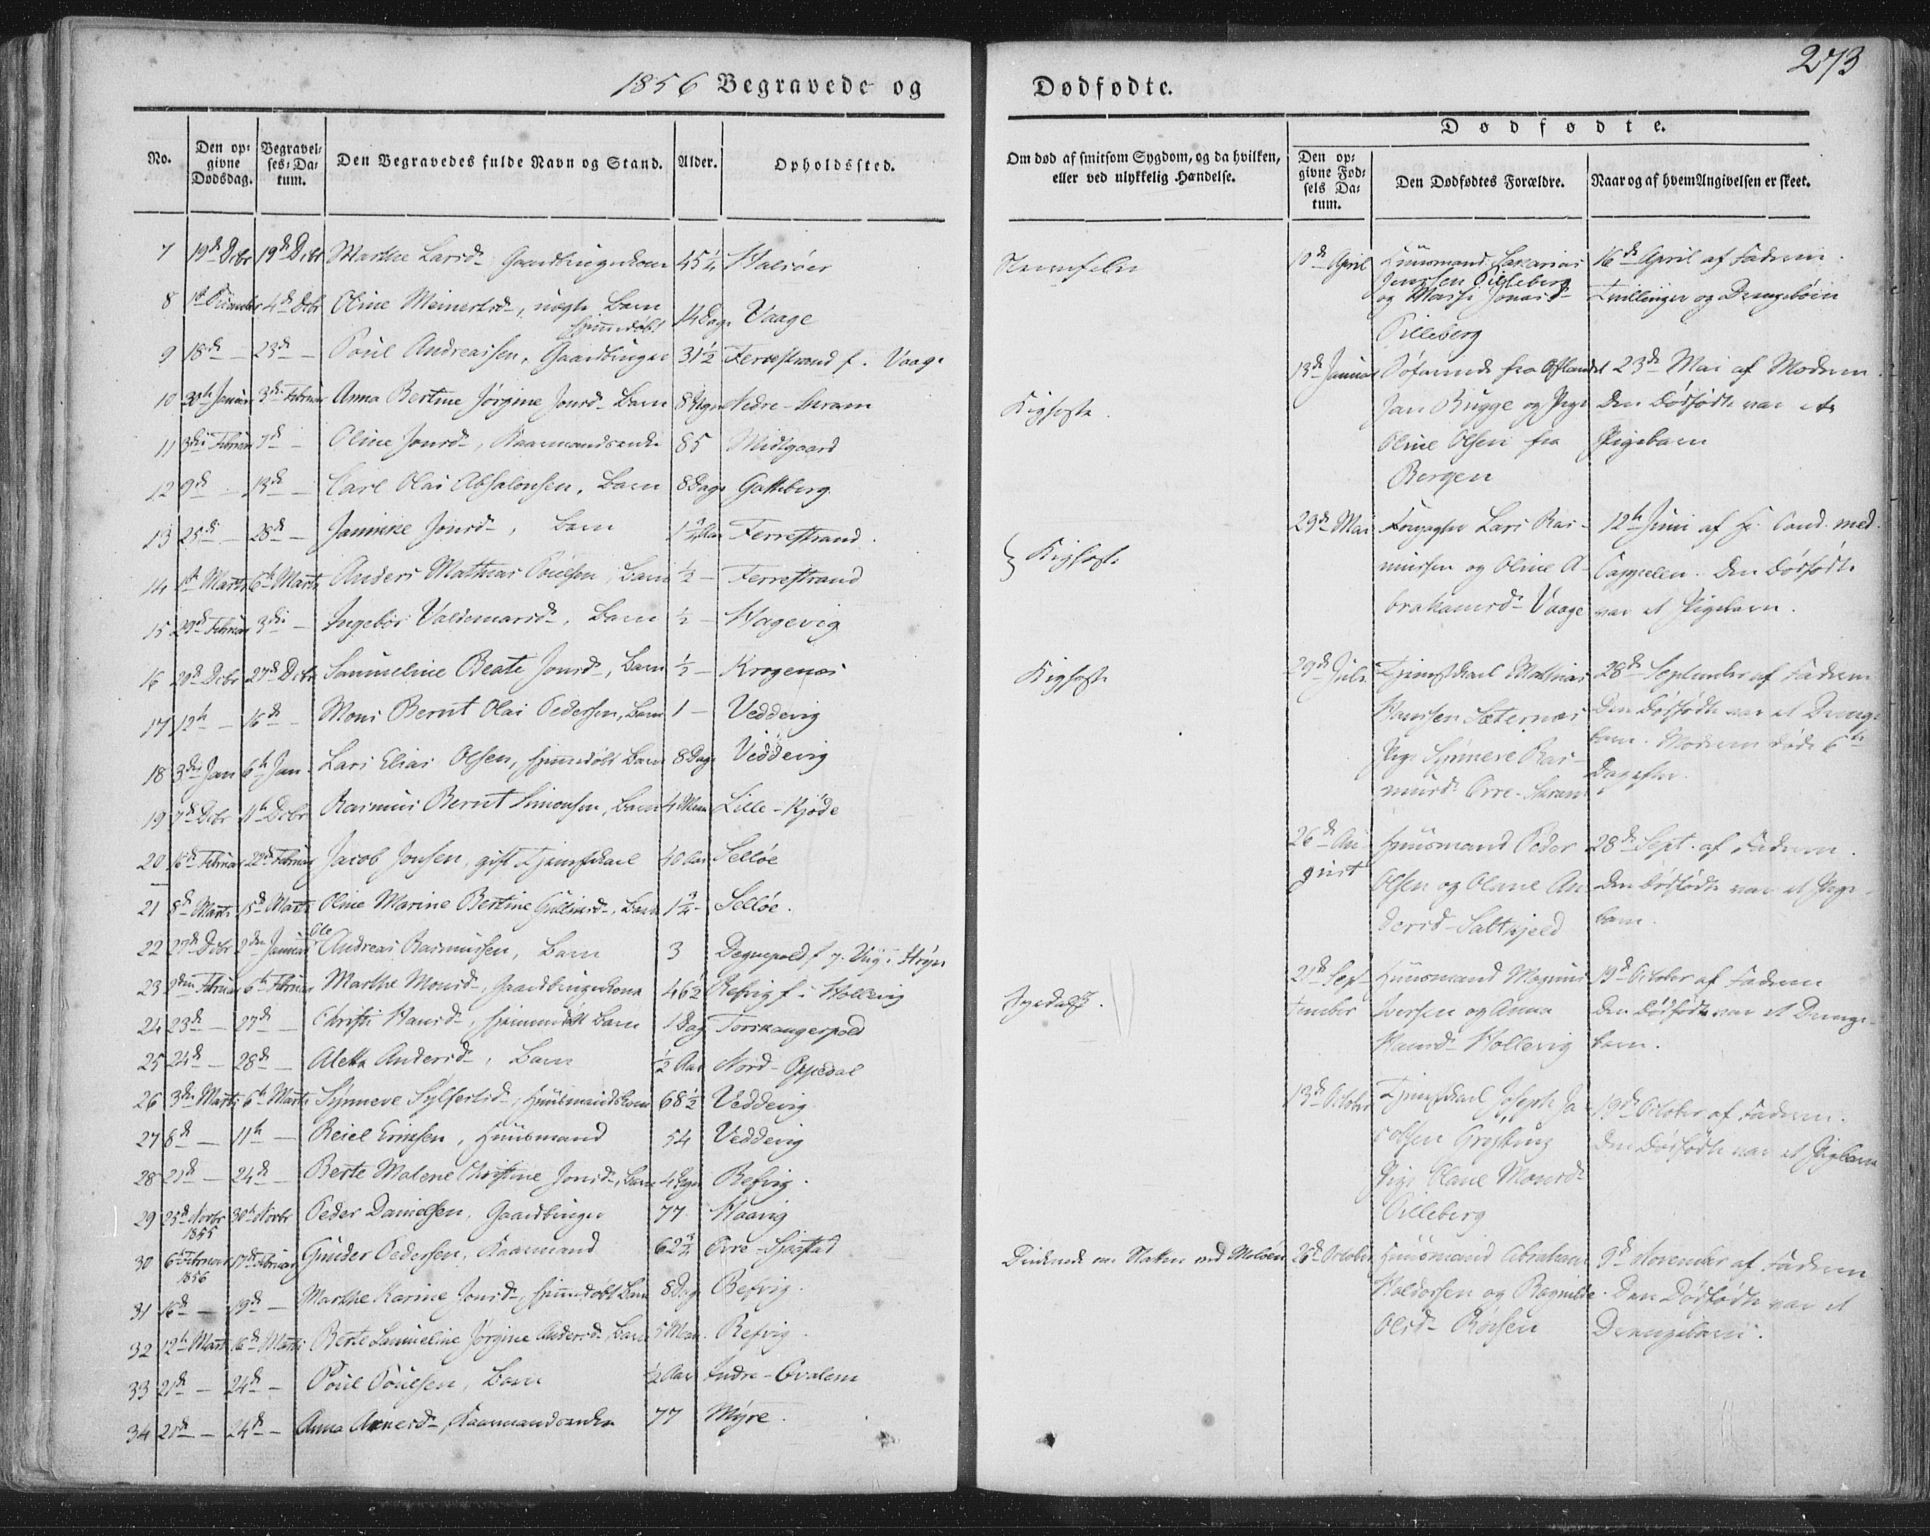 273
1856 Begravede og
Dødfødte.
No.
Den op-
givne
Dødsdag.
Begravel-
ses-Da-
tum.
Den Begravedes fulde Navn og Stand.
Alder.
Opholdssted.
7 19de Debr 19de Debr Marthe Larsd. Gaardbrugerkone 45 1/4
8 4de Debr Oline Meinertsd., uægte Barn 14 Dage Vaage
hjemmedøbt
9 18de — 23de — Poul Andreassen, Gaardbruger 31 1/2 Ferrestrand f. Vaage
10 30te Januar 3die Februar Anna Bertine Jørgine Jonsd. Barn Nedre-
11 3die Februar 7de — Oline Jonsd., Kaarmandsenke 85 Midtgaard
12 9de — 13de — Carl Olai Absalonsen, Barn 8 Dage Gotteberg
13 25de — 28de — Jannike Jonsd., Barn Ferrestrand.
14 1ste Marts 6te Marts Anders Mathias Poulsen, Barn 1/2 — Ferrestrand
15 29de Februar 3die — Ingebor Valdemarsd., Barn 1/2 — Hagevig
16 20de Debr 27de Debr Sammeline Beate Jonsd., Barn 1/2 — Krogenæs
17 12te — 16de — Mons Bernt Olai Pedersen, Barn 1 — Veddevig
18 3die Jan 6te Jan. Lars Elias Olsen, hjemmedøbt Barn 8 Dage Veddevig
19 7de Debr 11te Debr Rasmus Bernt Simonsen, Barn 4 Lille-Kjøde
20 16de Februar 22de Februar Jacob Jonsen, gift Tjenestekarl 40 Aar Selløe
21 8de Marts 15de Marts Oline Marine Bertine Barn Selløe.
22 27de Debr 2den Januar Ole Andreas Rasmussen, Barn 3 Degnepold f.
23 2den Februar 6te Februar Marthe Monsd., Gaardbrugerkone 46 1/2 Refvig f. i Hollevig
24 23de — 27de — Christi Hansd., hjemmedøbt Barn 1 Dag
25 24de — 28de — Aletta Andersd., Barn 1/2 Aar Nord-Oppedal
26 3die Marts 6te Marts Synneve Sylfestsd., Huusmandskone 68 1/2 Veddevig
27 8de — 11te — Reiel Huusmand 54 Veddevig
28 21de — 24de — Berte Malene Christine Jonsd., Barn Refvig.
29 25de Novbr 30te Novbr Peder Danielsen, Gaardbruger 77. Maavig
1855
30 6te Februar 17de Februar Gunder Pedersen, Kaarmand Øvre-
1856
31 16de — 19de — Marthe Karine Jonsd., hjemmedøbt Barn 8 Dage Refvig.
32 12te Marts 16de Marts Berte Sammeline Jørgine Andersd., Barn Refvig.
33 21de — 24de — Poul Poulsen, Barn 1/2 Aar Indre-
34 21de — 24de — Anna Arnesd., Kaarmandsenke 77 Myre.
Om død af smitsom Sygdom, og da hvilken,
eller ved ulykkelig Hændelse.
Kighoste.
Kighoste
Kighoste
Druknede ved Moldøen
Dødfødte.
Den op-
givne Fød-
sels Da-
tum.
Den Dødfødtes Forældre.
Naar og af hvem Angivelsen er skeet.
10de April Huusmand Zakarias
Jensen Pilleberg
og Massi Jonasd.
Pilleberg
16de April af Faderen.
Tvillinger og Drengebørn
13de Januar Søfarende fra Østlandet
Jan Brügge og Pige
Oline Olsen fra
Bergen
23de Mai af Moderen.
Den Dødfødte var et
Pigebarn
29de Mai Forpagter Lars Ras-
mussen og Oline A-
brahamsd. Vaage
12te Juni af Hr. Cand. med.
Cappelen. Den Dødfødte
var et Pigebarn.
29de Juli Tjenestekarl Mathias
Hansen Sæternæs
Pige Synneve Ras-
musd.
28de September af Faderen
Den Dødfødte var et Drenge-
barn. Moderen døde 6te
Dag efter.
26de Au-
gust
Huusmand Peder
Olsen og Olane An-
dersd. Saltkjeld
28de Sept. af Faderen.
Den Dødfødte var et Pige-
barn.
21de Sep-
tember
Huusmand Magnus
Iversen og Anna
Hansd. Hollevig
19de October af Faderen
Den Dødfødte var et Drenge-
barn.
13de October Tjenestekarl Joseph Ja-
cobsen
Pige Olane Monsd.
Pilleberg
19de October af Faderen.
Den Dødfødte var et Pigebarn
26de October Huusmand Abraham
Haldorsen og Ragnilde
Olsd.
9de November af Faderen
Den Dødfødte var et
Drengebarn.